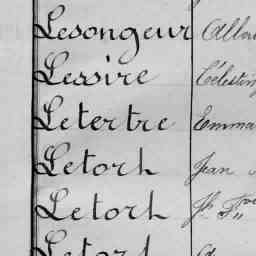 Lesongeur
Lessire Célestin
Letertre Emma
Letorh Jean
Letorh